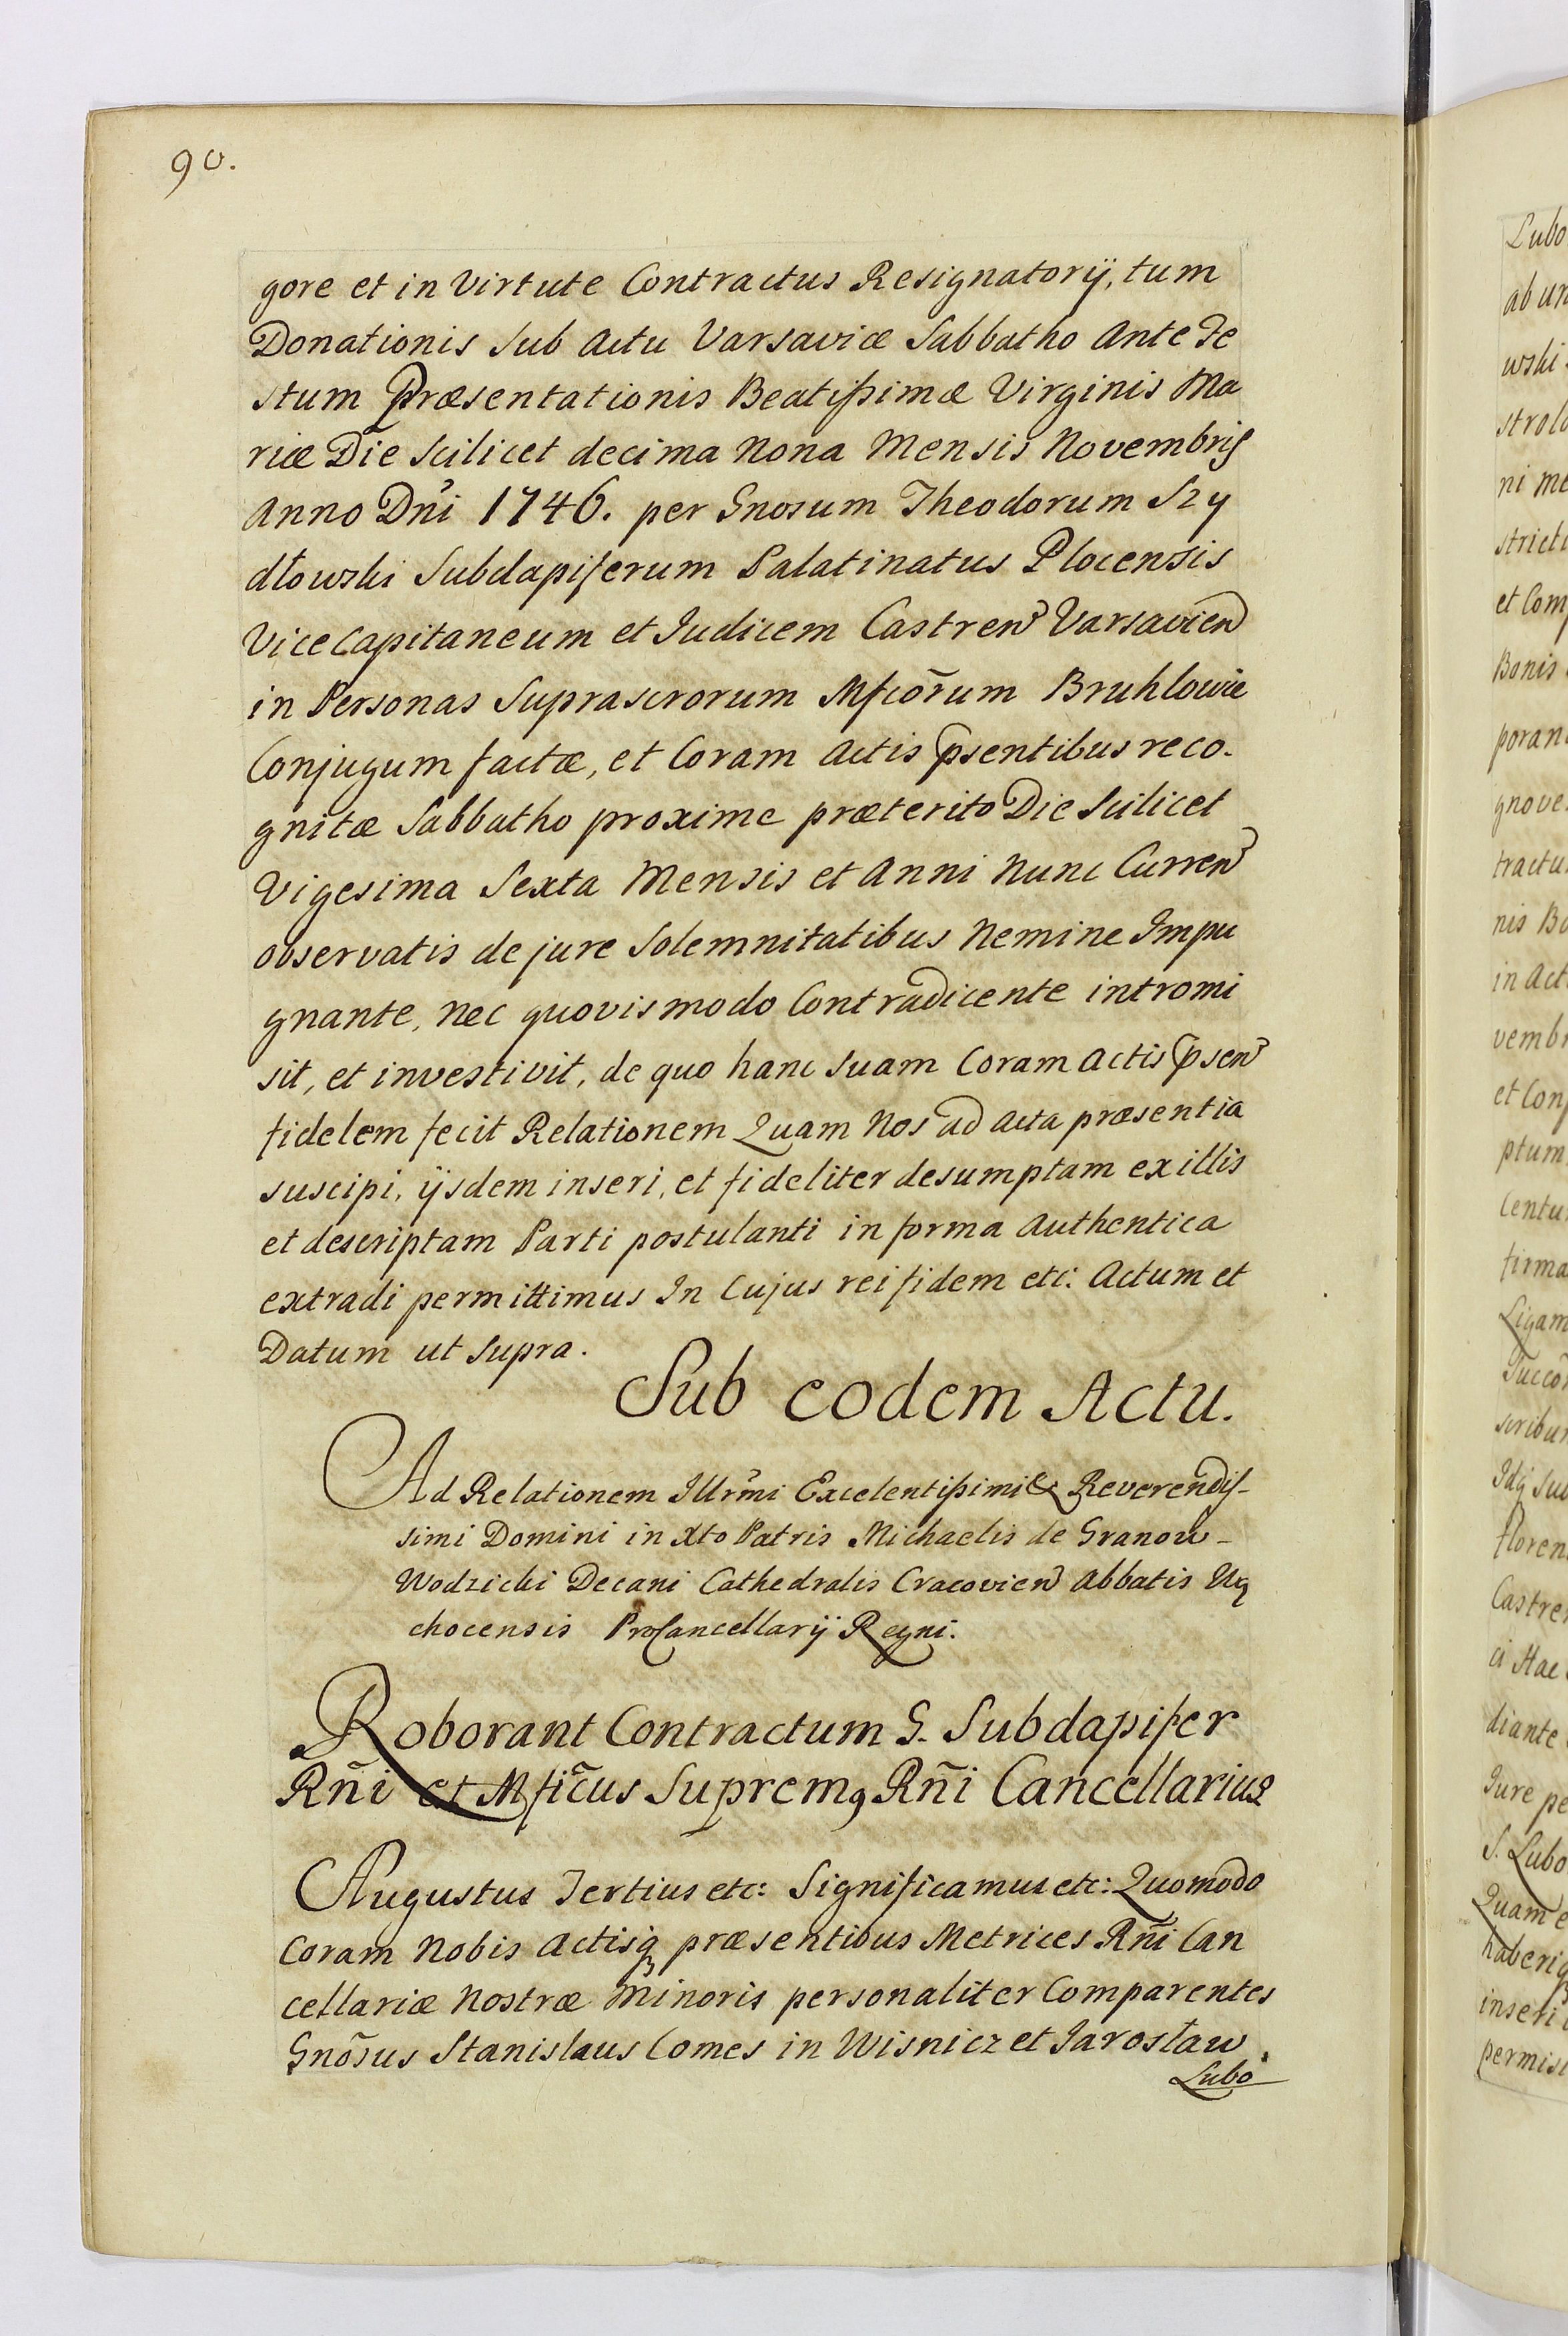 90.
gore et in Virtute Contractus Resignatorÿ, tum
Donationis Sub Actu Varsaviæ Sabbatho Ante Fe
stum Præsentationis Beatißimæ Virginis Ma
riæ Die Scilicet decima Nona Mensis Novembris
Anno Dñi 1746. per Gnosum Theodorum Szy
dłowski Subdapiferum Palatinatus Plocensis
Vice Capitaneum et Judicem Castren Varsavien
in Personas Suprascrorum Mficõrum Bruhlowie
Conjugum factæ, et Coram Actis psentibus reco-
gnitæ Sabbatho proxime præterito Die Scilicet
Vigesima Sexta Mensis et Anni Nunc Curren
observatis de jure Solemnitatibus Nemine Impu
gnante, nec quovis modo Contradicente intromi
sit, et investivit, de quo hanc suam Coram Actis psen
fidelem fecit Relationem Quam Nos ad Acta præsentia
suscipi, ÿsdem inseri, et fideliter desumptam ex illis
et descriptam Parti postulanti in forma Authentica
extradi permittimus In Cujus rei fidem etc: Actum et
Datum ut Supra.
Sub eodem Actu.
Ad Relationem Illrmi Excelentißimi & Reverendis-
simi Domini in Xto Patris Michaelis de Granow-
Wodzicki Decani Cathedralis Cracovien Abbatis Wą
chocensis ProCancellarÿ Regni.
Roborant Contractum G. Subdapifer
Rñi et Mficus Supremq Rñi Cancellarius
Augustus Tertius etc: Significamus etc: Quomodo
Coram Nobis Actisq præsentibus Metrices Rñi Can
cellariæ Nostræ Minoris personaliter Comparentes
Gnõsus Stanislaus Comes in Wisnicz et Jarosław
Lubo
Lubo
wski
strol
ni me
et Com
Bonis
poran
gnove
tractu
nis Bo
in Act
vemb
et Con
ptum
Centu
firma
Ligam
scribu
floren
Castre
diante
Jure pe
S. Lubo
Quam e
haberi
inseri
permisi